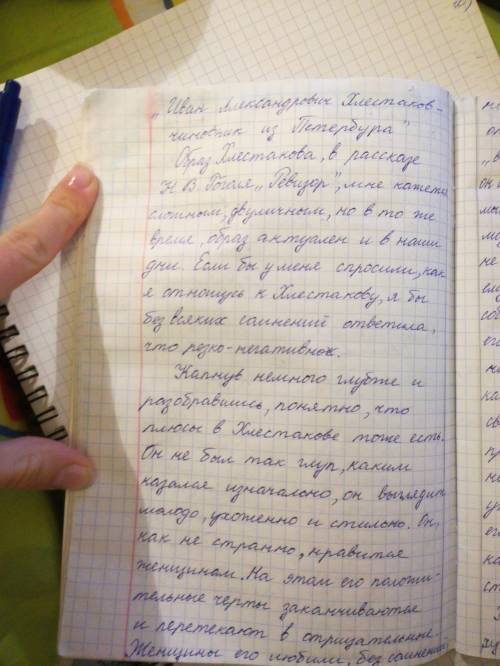 „Иван Александрович Хлестаков-
чиновник из Петербура"
Образ Хлестакова, в рассказе
Н В. Гоголя „Ревизор", мне кажется
сложным, двуличным, но в то же
время, образ актуален и в наши
дни. Если бы у меня спросили, как
я отношусь к Хлестакову, я бы
без всяких сомнений ответила,
что резко-негативно.
Капнув немного глубже и
разобравшись, понятно, что
плюсы в Хлестакове тоже есть.
Он не был так глуп, каким
казался изначально, он выглядит
молодо, ухоженно и стильно. Он,
как не странно, нравится
женщинам. На этом его положи-
тельные черты заканчиваются
и перетекают в отрицательные.
Женщины его любили, без сомнений